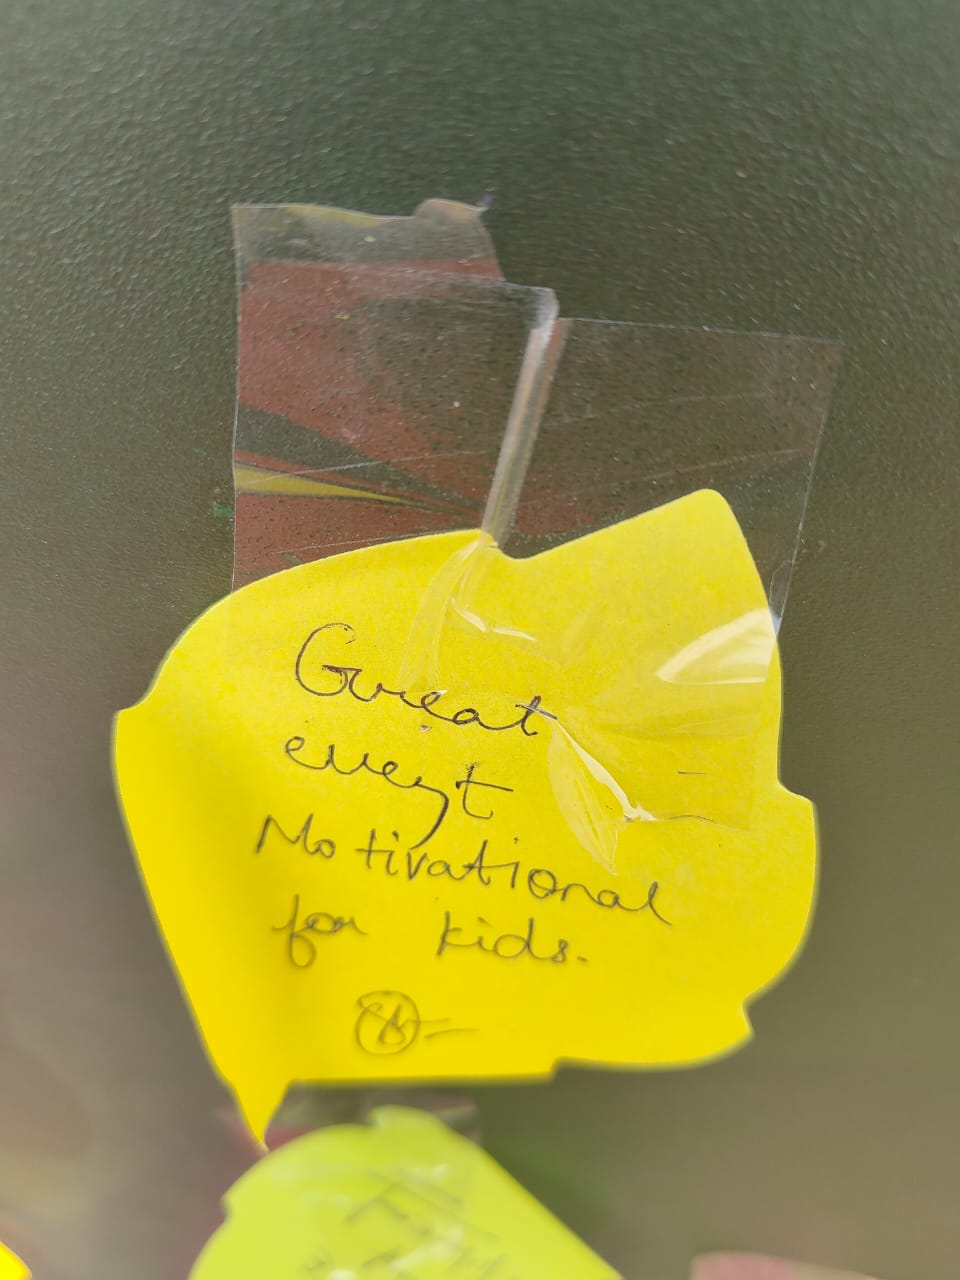 Great
event
Motivational
for kids.